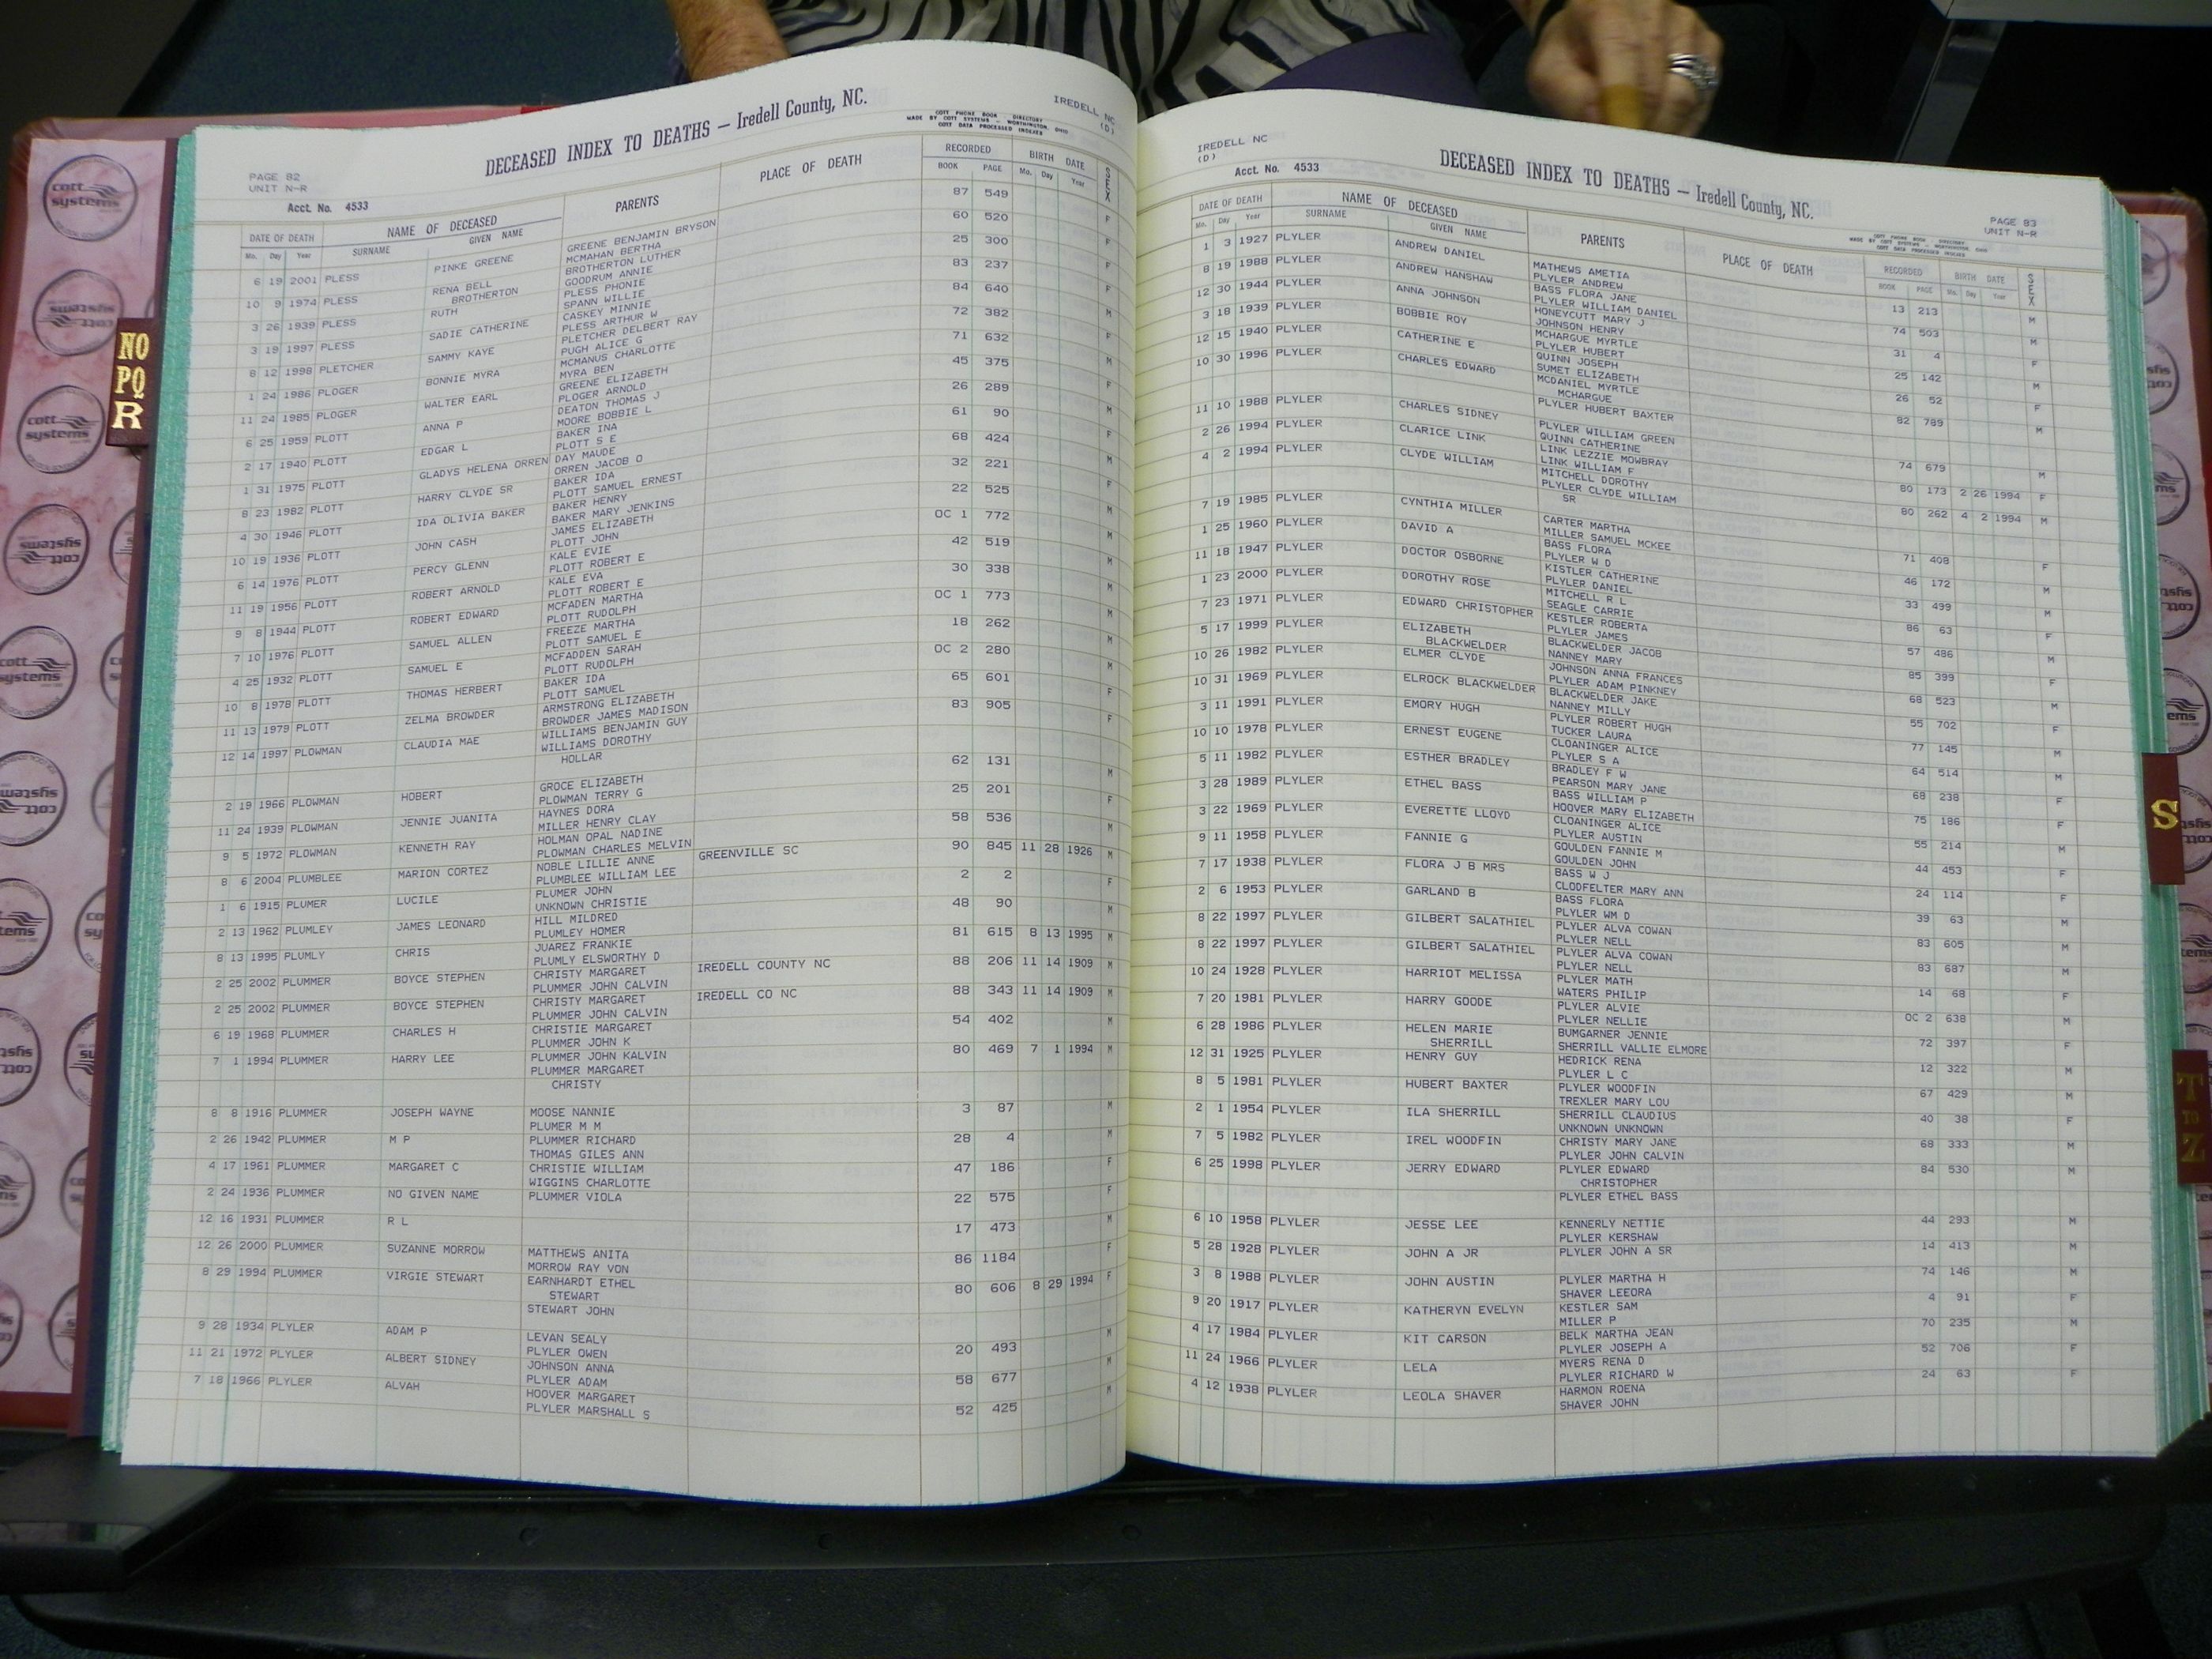 cott systems
NO
PQ
R
S
T
TO
Z
PAGE 82
UNIT N-R
Acct. No. 4533
DECEASED INDEX TO DEATHS — Iredell County, NC.
COTT PHONE BOOK DIRECTORY
MADE BY COTT SYSTEMS - WORTHINGTON, OHIO
COTT DATA PROCESSED INDEXES
IREDELL NC
(D)
DATE OF DEATH NAME OF DECEASED PARENTS PLACE OF DEATH RECORDED BIRTH DATE SEX
Mo. Day Year SURNAME GIVEN NAME BOOK PAGE Mo. Day Year
6 19 2001 PLESS PINKE GREENE GREENE BENJAMIN BRYSON 87 549 F
MCMAHAN BERTHA
10 9 1974 PLESS RENA BELL BROTHERTON LUTHER 60 520
BROTHERTON GOODRUM ANNIE
3 26 1939 PLESS RUTH PLESS PHONIE 25 300 F
SPANN WILLIE
3 19 1997 PLESS SADIE CATHERINE CASKEY MINNIE 83 237 F
PLESS ARTHUR W
8 12 1998 PLETCHER SAMMY KAYE PLETCHER DELBERT RAY 84 640 M
PUGH ALICE G
1 24 1986 PLOGER BONNIE MYRA MCMANUS CHARLOTTE 72 382 F
MYRA BEN
11 24 1985 PLOGER WALTER EARL GREENE ELIZABETH 71 632 M
PLOGER ARNOLD
6 25 1959 PLOTT ANNA P DEATON THOMAS J 45 375 F
MOORE BOBBIE L
2 17 1940 PLOTT EDGAR L BAKER INA 26 289 M
PLOTT S E
1 31 1975 PLOTT GLADYS HELENA ORREN DAY MAUDE 61 90 F
ORREN JACOB O
8 23 1982 PLOTT HARRY CLYDE SR BAKER IDA 68 424 M
PLOTT SAMUEL ERNEST
4 30 1946 PLOTT IDA OLIVIA BAKER BAKER HENRY 32 221 F
BAKER MARY JENKINS
10 19 1936 PLOTT JOHN CASH JAMES ELIZABETH 22 525 M
PLOTT JOHN
6 14 1976 PLOTT PERCY GLENN KALE EVIE OC 1 772 M
PLOTT ROBERT E
11 19 1956 PLOTT ROBERT ARNOLD KALE EVA 42 519 M
PLOTT ROBERT E
9 8 1944 PLOTT ROBERT EDWARD MCFADEN MARTHA 30 338 M
PLOTT RUDOLPH
7 10 1976 PLOTT SAMUEL ALLEN FREEZE MARTHA OC 1 773 M
PLOTT SAMUEL E
4 25 1932 PLOTT SAMUEL E MCFADDEN SARAH 18 262 M
PLOTT RUDOLPH
10 8 1978 PLOTT THOMAS HERBERT BAKER IDA OC 2 280 M
PLOTT SAMUEL
11 13 1979 PLOTT ZELMA BROWDER ARMSTRONG ELIZABETH 65 601 F
BROWDER JAMES MADISON
12 14 1997 PLOWMAN CLAUDIA MAE WILLIAMS BENJAMIN GUY 83 905 F
WILLIAMS DOROTHY
HOLLAR
2 19 1966 PLOWMAN HOBERT GROCE ELIZABETH 62 131 M
PLOWMAN TERRY G
11 24 1939 PLOWMAN JENNIE JUANITA HAYNES DORA 25 201 F
MILLER HENRY CLAY
9 5 1972 PLOWMAN KENNETH RAY HOLMAN OPAL NADINE 58 536 M
PLOWMAN CHARLES MELVIN
8 6 2004 PLUMBLEE MARION CORTEZ NOBLE LILLIE ANNE GREENVILLE SC 90 845 11 28 1926 M
PLUMBLEE WILLIAM LEE
1 6 1915 PLUMER LUCILE PLUMER JOHN 2 2 F
UNKNOWN CHRISTIE
2 13 1962 PLUMLEY JAMES LEONARD HILL MILDRED 48 90 M
PLUMLEY HOMER
8 13 1995 PLUMLY CHRIS JUAREZ FRANKIE 81 615 8 13 1995 M
PLUMLY ELSWORTHY D
2 25 2002 PLUMMER BOYCE STEPHEN CHRISTY MARGARET IREDELL COUNTY NC 88 206 11 14 1909 M
PLUMMER JOHN CALVIN
2 25 2002 PLUMMER BOYCE STEPHEN CHRISTY MARGARET IREDELL CO NC 88 343 11 14 1909 M
PLUMMER JOHN CALVIN
6 19 1968 PLUMMER CHARLES H CHRISTIE MARGARET 54 402 M
PLUMMER JOHN K
7 1 1994 PLUMMER HARRY LEE PLUMMER JOHN KALVIN 80 469 7 1 1994 M
PLUMMER MARGARET
CHRISTY
8 8 1916 PLUMMER JOSEPH WAYNE MOOSE NANNIE 3 87 M
PLUMER M M
2 26 1942 PLUMMER M P PLUMMER RICHARD 28 4
THOMAS GILES ANN
4 17 1961 PLUMMER MARGARET C CHRISTIE WILLIAM 47 186 F
WIGGINS CHARLOTTE
2 24 1936 PLUMMER NO GIVEN NAME PLUMMER VIOLA 22 575 F
12 16 1931 PLUMMER R L 17 473 M
12 26 2000 PLUMMER SUZANNE MORROW MATTHEWS ANITA 86 1184 F
MORROW RAY VON
8 29 1994 PLUMMER VIRGIE STEWART EARNHARDT ETHEL 80 606 8 29 1994 F
STEWART
STEWART JOHN
9 28 1934 PLYLER ADAM P LEVAN SEALY 20 493 M
PLYLER OWEN
11 21 1972 PLYLER ALBERT SIDNEY JOHNSON ANNA 58 677 M
PLYLER ADAM
7 18 1966 PLYLER ALVAH HOOVER MARGARET 52 425 M
PLYLER MARSHALL S
IREDELL NC
(D)
Acct. No. 4533
DECEASED INDEX TO DEATHS — Iredell County, NC.
PAGE 83
UNIT N-R
COTT PHONE BOOK DIRECTORY
MADE BY COTT SYSTEMS - WORTHINGTON, OHIO
COTT DATA PROCESSED INDEXES
DATE OF DEATH NAME OF DECEASED PARENTS PLACE OF DEATH RECORDED BIRTH DATE SEX
Mo. Day Year SURNAME GIVEN NAME BOOK PAGE Mo. Day Year
1 3 1927 PLYLER ANDREW DANIEL MATHEWS AMETIA 13 213 M
PLYLER ANDREW
8 19 1988 PLYLER ANDREW HANSHAW BASS FLORA JANE 74 503 M
PLYLER WILLIAM DANIEL
12 30 1944 PLYLER ANNA JOHNSON HONEYCUTT MARY J 31 4 F
JOHNSON HENRY
3 18 1939 PLYLER BOBBIE ROY MCHARGUE MYRTLE 25 142 M
PLYLER HUBERT
12 15 1940 PLYLER CATHERINE E QUINN JOSEPH 26 52 F
SUMET ELIZABETH
10 30 1996 PLYLER CHARLES EDWARD MCDANIEL MYRTLE 82 789 M
MCHARGUE
PLYLER HUBERT BAXTER
11 10 1988 PLYLER CHARLES SIDNEY PLYLER WILLIAM GREEN 74 679 M
QUINN CATHERINE
2 26 1994 PLYLER CLARICE LINK LINK LEZZIE MOWBRAY 80 173 2 26 1994 F
LINK WILLIAM F
4 2 1994 PLYLER CLYDE WILLIAM MITCHELL DOROTHY 80 262 4 2 1994 M
PLYLER CLYDE WILLIAM
SR
7 19 1985 PLYLER CYNTHIA MILLER CARTER MARTHA 71 408 F
MILLER SAMUEL MCKEE
1 25 1960 PLYLER DAVID A BASS FLORA 46 172 M
PLYLER W D
11 18 1947 PLYLER DOCTOR OSBORNE KISTLER CATHERINE 33 499 M
PLYLER DANIEL
1 23 2000 PLYLER DOROTHY ROSE MITCHELL R L 86 63 F
SEAGLE CARRIE
7 23 1971 PLYLER EDWARD CHRISTOPHER KESTLER ROBERTA 57 486 M
PLYLER JAMES
5 17 1999 PLYLER ELIZABETH BLACKWELDER JACOB 85 399 F
BLACKWELDER NANNEY MARY
10 26 1982 PLYLER ELMER CLYDE JOHNSON ANNA FRANCES 68 523 M
PLYLER ADAM PINKNEY
10 31 1969 PLYLER ELROCK BLACKWELDER BLACKWELDER JAKE 55 702 F
NANNEY MILLY
3 11 1991 PLYLER EMORY HUGH PLYLER ROBERT HUGH 77 145 M
TUCKER LAURA
10 10 1978 PLYLER ERNEST EUGENE CLOANINGER ALICE 64 514 M
PLYLER S A
5 11 1982 PLYLER ESTHER BRADLEY BRADLEY F W 68 238 F
PEARSON MARY JANE
3 28 1989 PLYLER ETHEL BASS BASS WILLIAM P 75 186 F
HOOVER MARY ELIZABETH
3 22 1969 PLYLER EVERETTE LLOYD CLOANINGER ALICE 55 214 M
PLYLER AUSTIN
9 11 1958 PLYLER FANNIE G GOULDEN FANNIE M 44 453 F
GOULDEN JOHN
7 17 1938 PLYLER FLORA J B MRS BASS W J 24 114 F
CLODFELTER MARY ANN
2 6 1953 PLYLER GARLAND B BASS FLORA 39 63 M
PLYLER WM D
8 22 1997 PLYLER GILBERT SALATHIEL PLYLER ALVA COWAN 83 605 M
PLYLER NELL
8 22 1997 PLYLER GILBERT SALATHIEL PLYLER ALVA COWAN 83 687 M
PLYLER NELL
10 24 1928 PLYLER HARRIOT MELISSA PLYLER MATH 14 68 F
WATERS PHILIP
7 20 1981 PLYLER HARRY GOODE PLYLER ALVIE OC 2 638 M
PLYLER NELLIE
6 28 1986 PLYLER HELEN MARIE BUMGARNER JENNIE 72 397 F
SHERRILL SHERRILL VALLIE ELMORE
12 31 1925 PLYLER HENRY GUY HEDRICK RENA 12 322 M
PLYLER L C
8 5 1981 PLYLER HUBERT BAXTER PLYLER WOODFIN 67 429 M
TREXLER MARY LOU
2 1 1954 PLYLER ILA SHERRILL SHERRILL CLAUDIUS 40 38 F
UNKNOWN UNKNOWN
7 5 1982 PLYLER IREL WOODFIN CHRISTY MARY JANE 68 333 M
PLYLER JOHN CALVIN
6 25 1998 PLYLER JERRY EDWARD PLYLER EDWARD 84 530 M
CHRISTOPHER
PLYLER ETHEL BASS
6 10 1958 PLYLER JESSE LEE KENNERLY NETTIE 44 293 M
PLYLER KERSHAW
5 28 1928 PLYLER JOHN A JR PLYLER JOHN A SR 14 413 M
3 8 1988 PLYLER JOHN AUSTIN PLYLER MARTHA H 74 146 M
SHAVER LEEORA
9 20 1917 PLYLER KATHERYN EVELYN KESTLER SAM 4 91 F
MILLER P
4 17 1984 PLYLER KIT CARSON BELK MARTHA JEAN 70 235 M
PLYLER JOSEPH A
11 24 1966 PLYLER LELA MYERS RENA D 52 706 F
PLYLER RICHARD W
4 12 1938 PLYLER LEOLA SHAVER HARMON ROENA 24 63 F
SHAVER JOHN